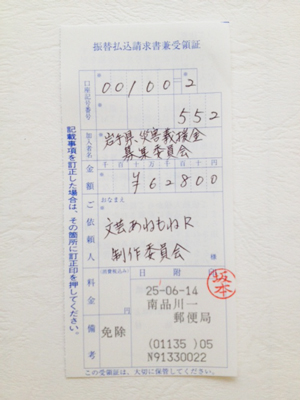 振替払込請求書兼受領証
口座記号番号
00100-2
552
加入者名
岩手県災害義援金
募集委員会
金額
千百十万千百十円
¥62800
ご依頼人
おなまえ
文芸あねもねR
制作委員会
様
料金
(消費税込み)
日附印
25-06-14
南品川一
郵便局
(01135 )05
N91330022
坂本
備考
免除
この受領証は、大切に保管してください。
記載事項を訂正した場合は、その箇所に訂正印を押してください。